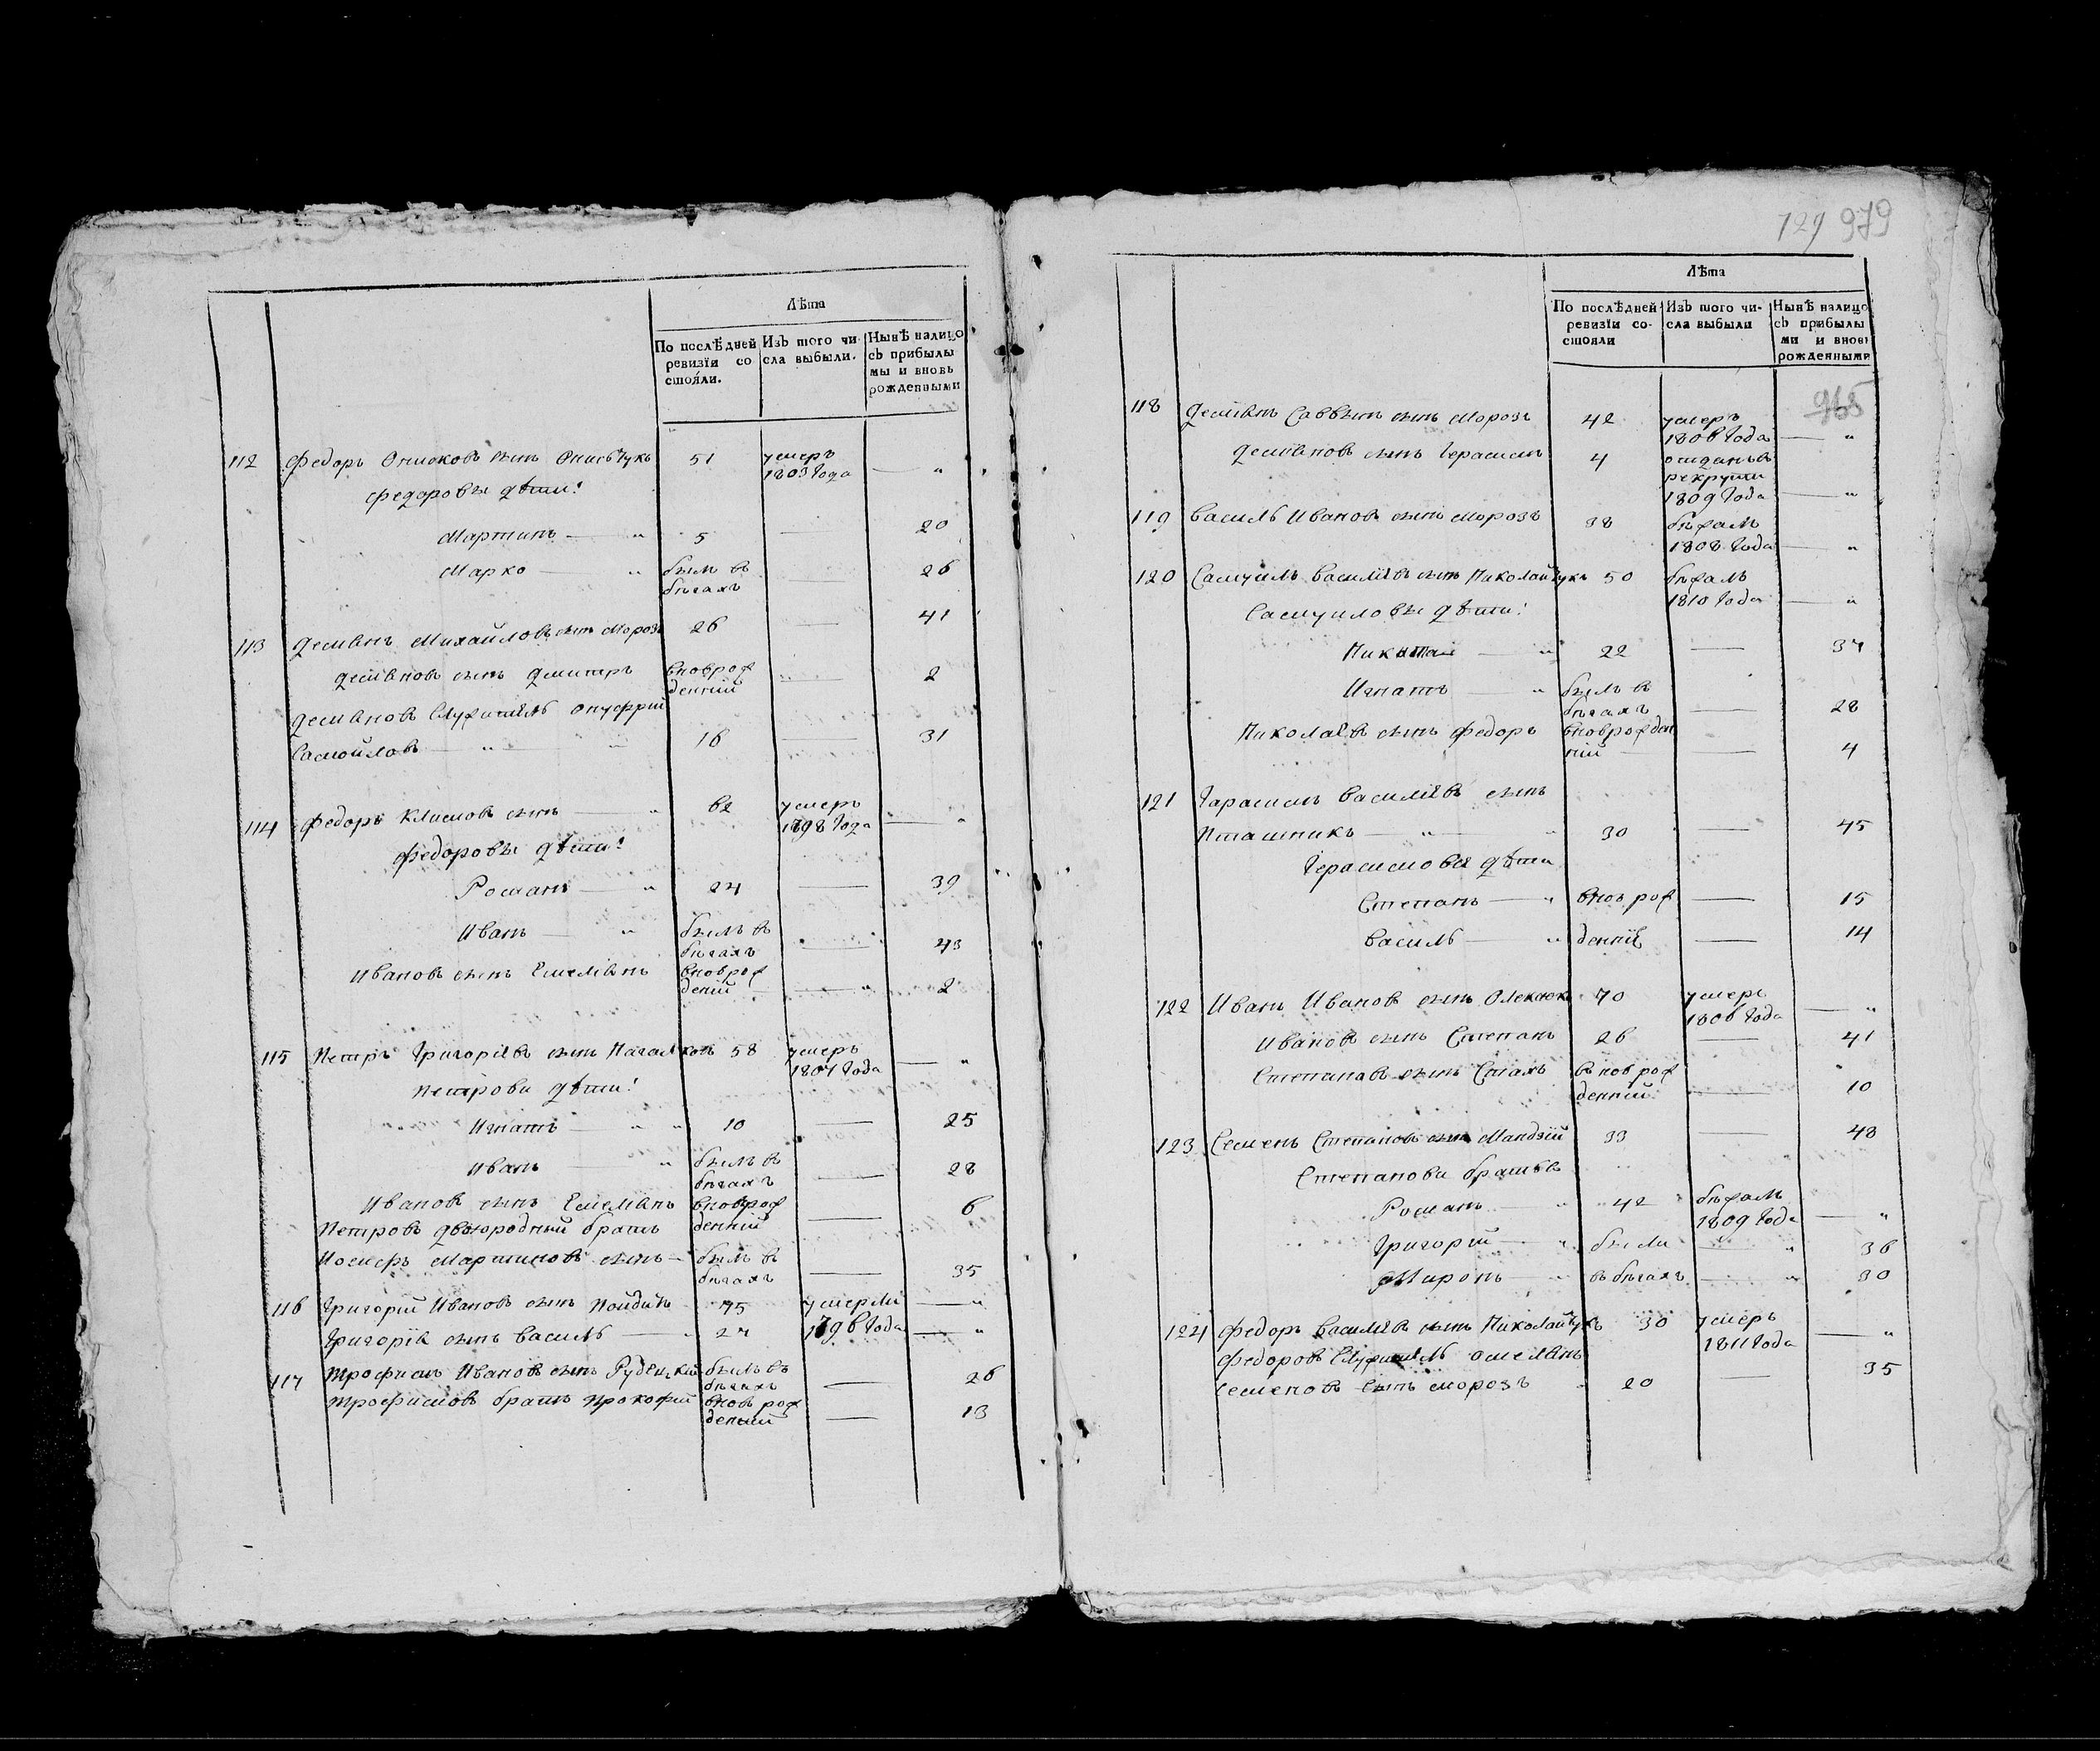 Лѣта
По послѣдней ревизїи состояли.
Изъ того числа выбыли.
Нынѣ налицо съ прибылымы и вновь рожденными
112 Федоръ Ониско​въ сынъ 51 умеръ 1803 года — „
Федоровы дѣти:
Мартинъ — „ 5 — 20
Марко — „ былъ в бѣгахъ 26
113 Демянъ Михайловъ сынъ Морозъ 26 — 41
Демяновъ сынъ Дмитръ вноврожденний — 2
Демяновъ служитель Онуфрий
Самойловъ — „ — „ 16 — 31
114 Федоръ Климовъ сынъ — „ 62 умеръ 1798 года — „
Федоровы дѣти:
Романъ — „ 24 — 39
Иванъ — „ былъ в бѣгахъ — 43
Ивановъ сынъ Емелянъ вноврождений — „ 2
115 Петръ Григориевъ сынъ 58 умеръ 1801 года — „
Петрови дѣти:
Игнатъ — „ „ 10 — 25
Иванъ — „ былъ в бѣгахъ — 28
Ивановъ сынъ Емелянъ вноврожденний — 6
Петровъ двоюродный братъ
Иосифъ Мартиновъ сынъ — былъ в бѣгахъ — 35
116 Григорий Ивановъ сынъ 75 умерли — „
Григория сынъ Василь — „ 27 1796 года — „
117 Трофимъ Ивановъ сынъ Рудецкий былъ въ бѣгахъ — 26
Трофимовъ братъ Прокофий вноврожденний — 13
129 979
Лѣта
По послѣдней ревизїи состояли
Изъ того числа выбыли
Нынѣ налицо съ прибылыми и вновь рожденными
965
118 Демянъ Саввинъ сынъ Морозъ 42 умеръ 1806 года — „
Демяновъ сынъ Герасимъ 4 отданъ в рекрути 1809 года — „
119 Василь Ивановъ сынъ Морозъ 38 бѣжалъ 1808 года — „
120 Самуилъ Василиевъ сынъ Николайчукъ 50 бѣжалъ 1810 года — „
Самуиловы дѣти:
Николай — „ 22 — 37
Игнатъ — „ былъ в бѣгахъ — 28
Николаевъ сынъ Федоръ вноврожденний — 4
121 Гарасимъ Василиевъ сынъ
Пташникъ — „ — „ 30 — 45
Герасимовы дѣти
Степанъ — „ вноврож — 15
Василь — „ денние — 14
122 Иванъ Ивановъ сынъ 70 умеръ 1806 года — „
Ивановъ сынъ Степанъ 26 — 41
Степановъ сынъ Стахъ вноврожденний — 10
123 Семенъ Степановъ сынъ Мандзий 33 — 48
Степанови братья
Романъ — „ 42 бѣжалъ 1809 года — „
Григорий — „ были — „ 36
Миронъ — „ въ бѣгахъ — „ 30
124 Федоръ Василиевъ сынъ Николайчукъ 30 умеръ 1811 года — „
Федоровъ служитель Омелянъ
Семеновъ сынъ Морозъ „ 20 — 35